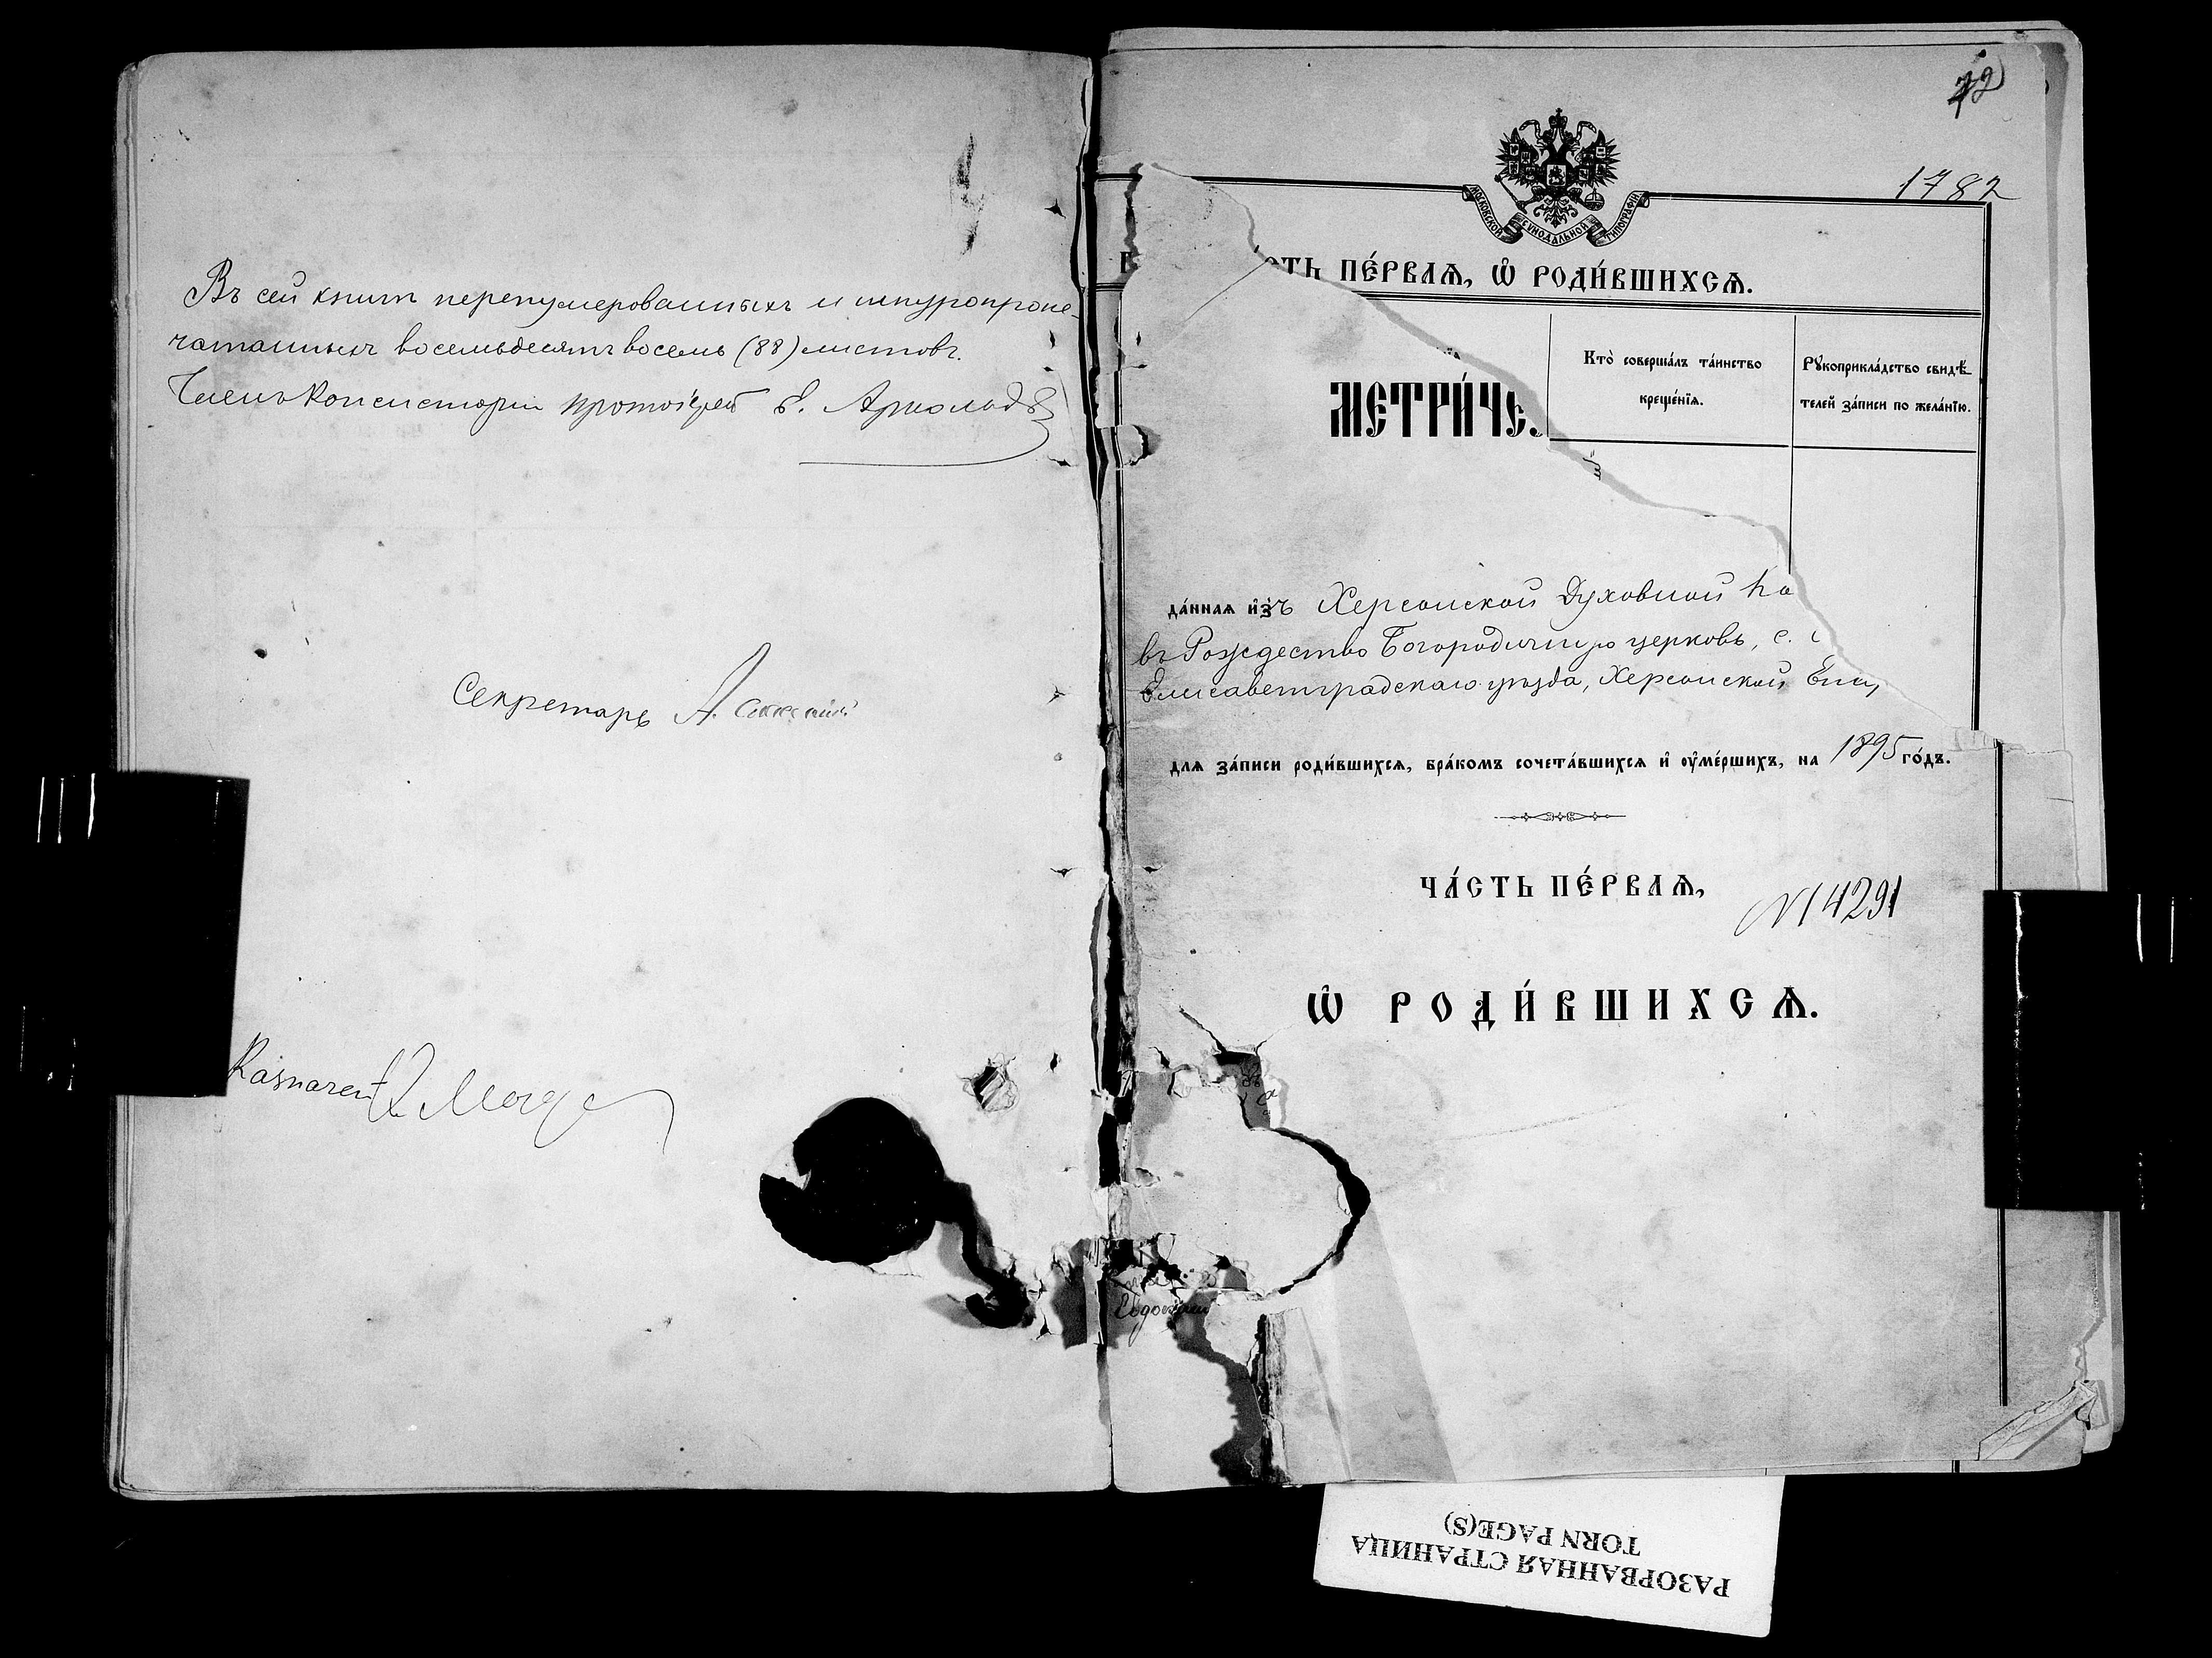 Въ сей книгѣ перенумерованныхъ и шнуропропе-
чатанныхъ восемьдесятъ восемь (88) листовъ.
Членъ Консисторіи протоіерей
Секретарь А.
12
1782
МОСКОВСКОЙ СѴНОДАЛЬНОЙ ТИПОГРАФІИ
сть пе́рваѧ, ѡ҆ роди́вшихсѧ.
Кто̀ соверша́лъ та́инство
креще́нїѧ.
Рꙋкоприкла́дство свидѣ́-
телей за́писи по жела́нїю.
МЕТРИ́ЧЕ
да́ннаѧ и҆зъ Херсонской Духовной Ко
въ Рождество Богородичную церковь, с.
Елисаветградскаго уѣзда, Херсонской Епа
для за́писи роди́вшихсѧ, бра́комъ сочета́вшихсѧ и҆ ᲂу҆ме́ршихъ, на 1895 го́дъ.
ЧА́СТЬ ПЕ́РВАѦ,
N 14291
Ѡ҆ РОДИ́ВШИХСѦ.
РАЗОРВАННАЯ СТРАНИЦА
TORN PAGE(S)